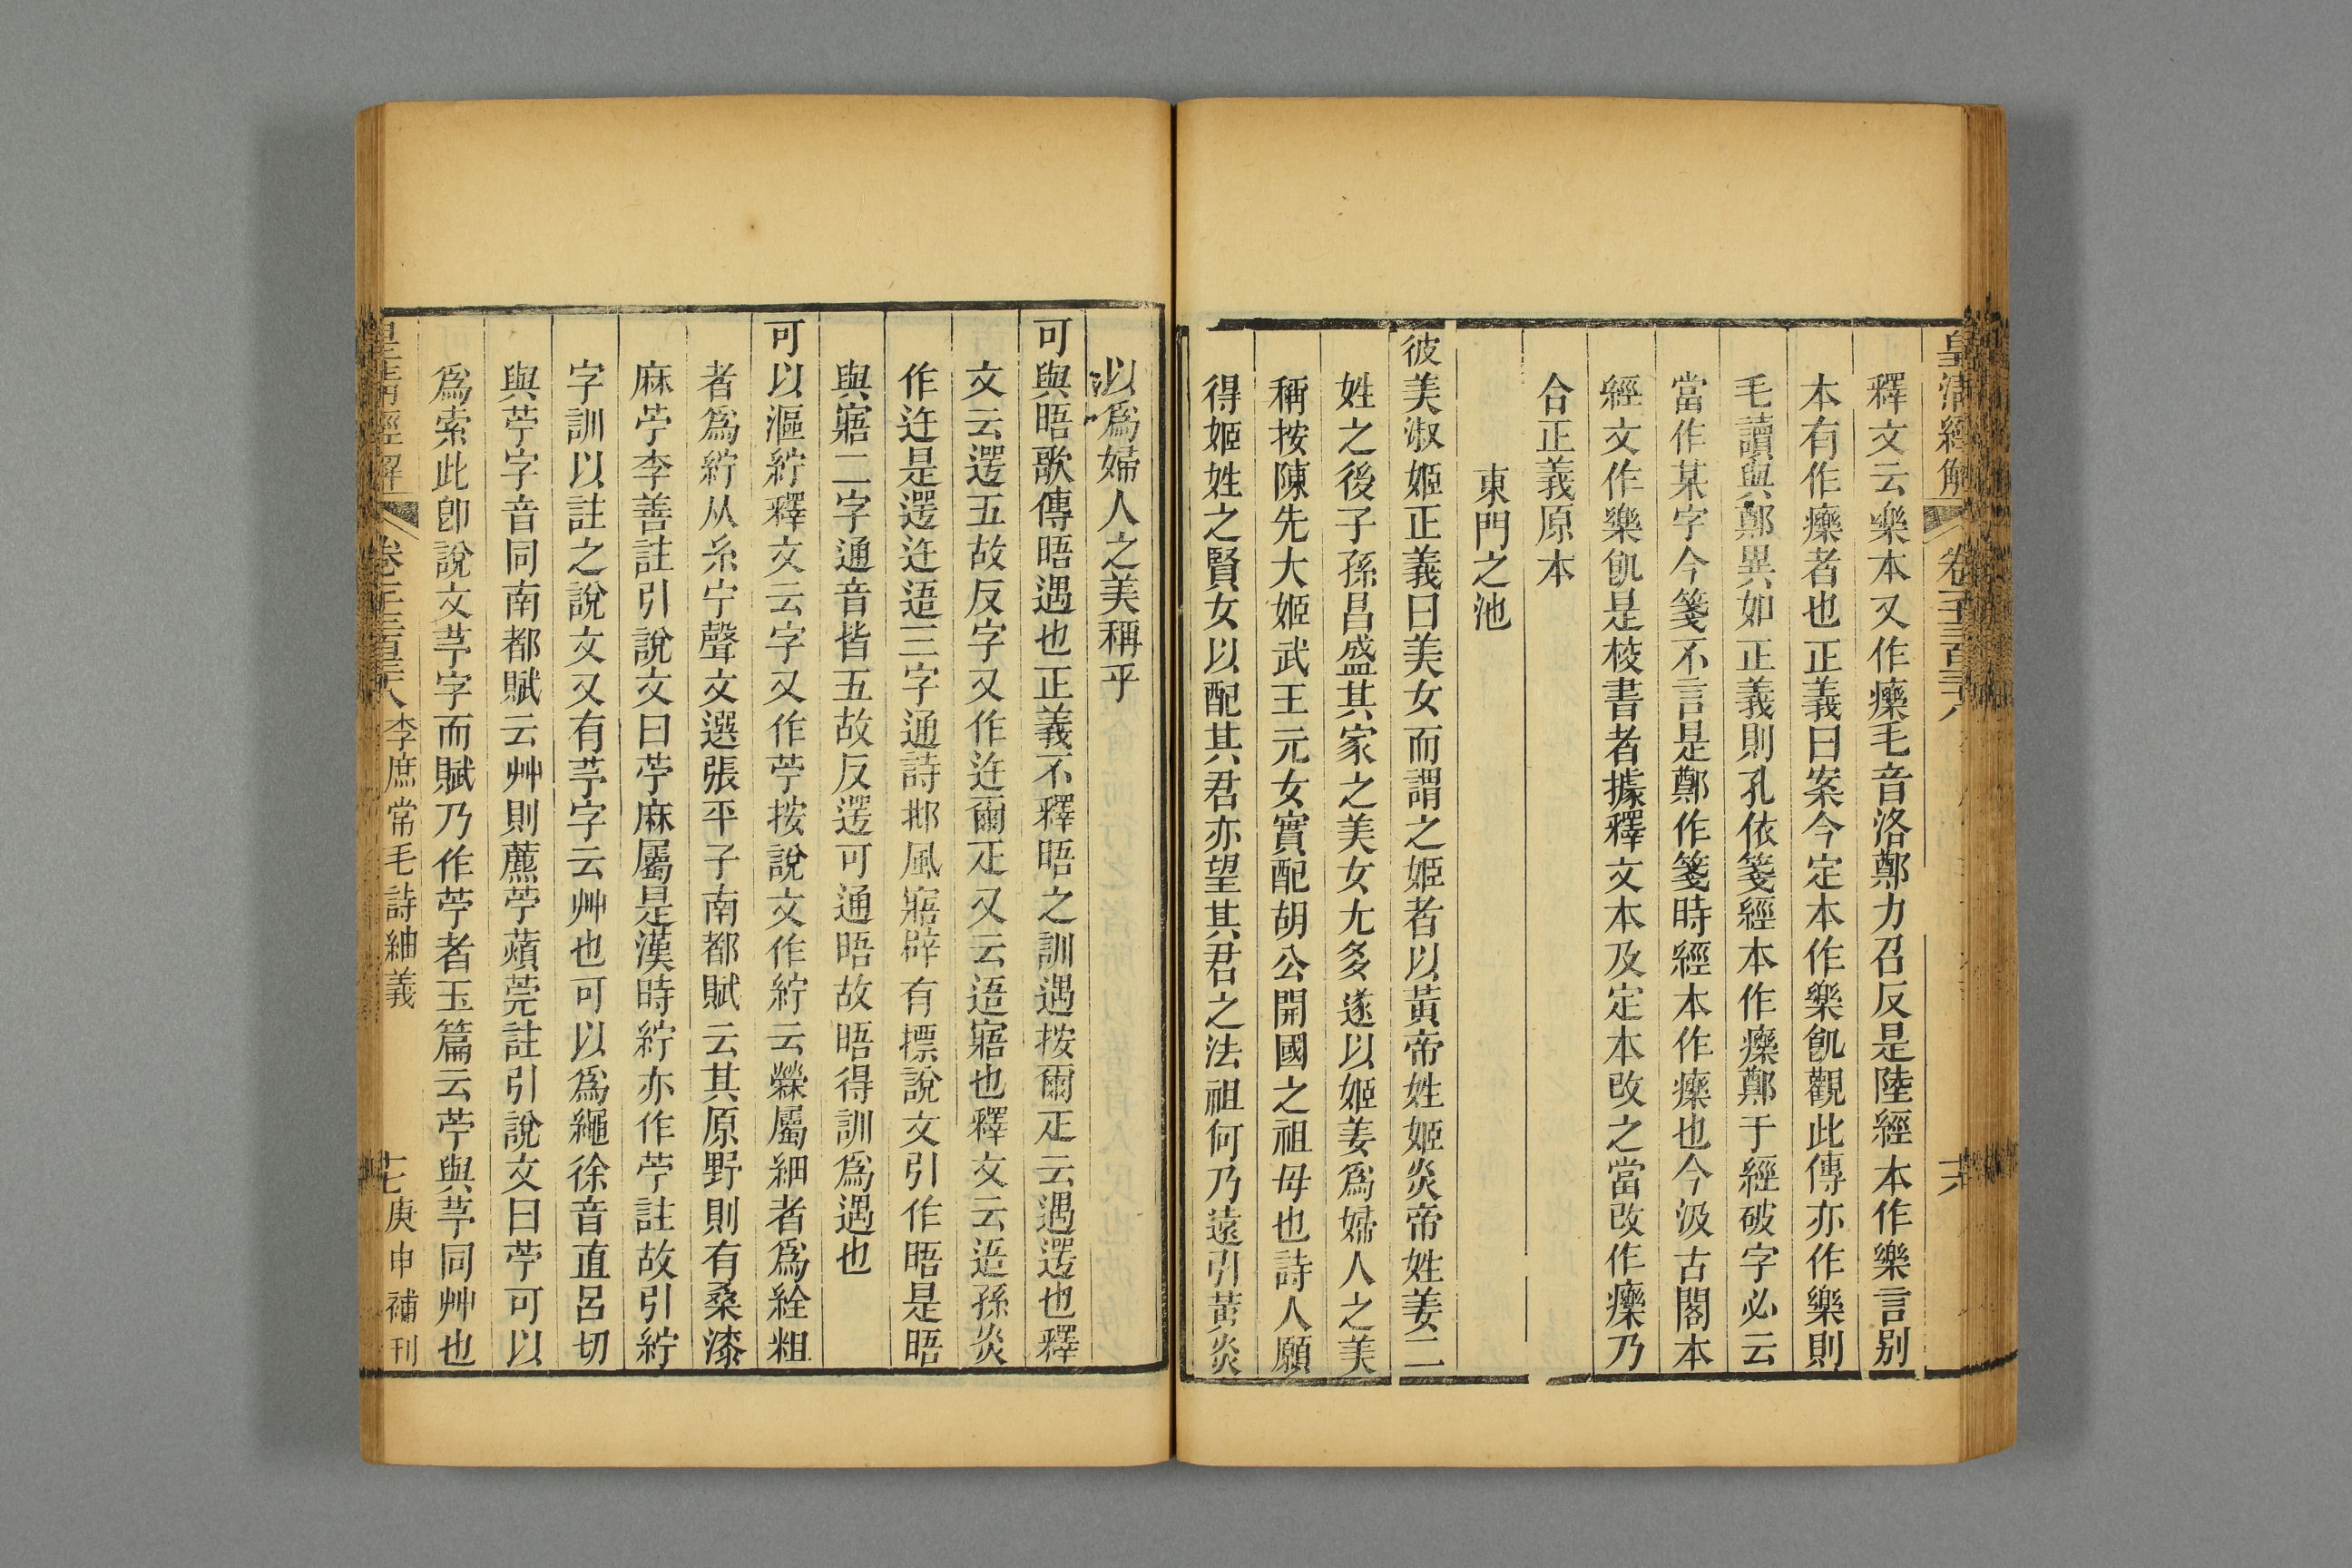 皇清經解 卷一千三百三十八 十六
釋文云樂本又作𤻲毛音洛鄭力召反是陸經本作樂言别
本有作𤻲者也正義曰案今定本作樂飢觀此傳亦作樂則
毛讀與鄭異如正義則孔依箋經本作𤻲鄭于經破字必云
當作某字今箋不言是鄭作箋時經本作𤻲也今汲古閣本
經文作樂飢是校書者據釋文本及定本改之當改作𤻲乃
合正義原本
東門之池
彼美淑姬正義曰美女而謂之姬者以黃帝姓姬炎帝姓姜二
姓之後子孫昌盛其家之美女尤多遂以姬姜爲婦人之美
稱按陳先大姬武王元女實配胡公開國之祖母也詩人願
得姬姓之賢女以配其君亦望其君之法祖何乃遠引黃炎
以爲婦人之美稱乎
可與晤歌傳晤遇也正義不釋晤之訓遇按爾疋云遇遻也釋
文云遻五故反字又作迕爾疋又云逜寤也釋文云逜孫炎
作迕是遻迕逜三字通詩邶風寤辟有摽說文引作晤是晤
與寤二字通音皆五故反遻可通晤故晤得訓爲遇也
可以漚紵釋文云字又作苧按說文作紵云檾屬細者爲絟粗
者爲紵从糸宁聲文選張平子南都賦云其原野則有桑漆
麻苧李善註引說文曰苧麻屬是漢時紵亦作苧註故引紵
字訓以註之說文又有芧字云艸也可以爲繩徐音直呂切
與苧字音同南都賦云艸則藨苧薠莞註引說文曰苧可以
爲索此卽說文芧字而賦乃作苧者玉篇云苧與芧同艸也
皇清經解 卷一千三百三十八 李庶常毛詩紬義 十七 庚申補刊